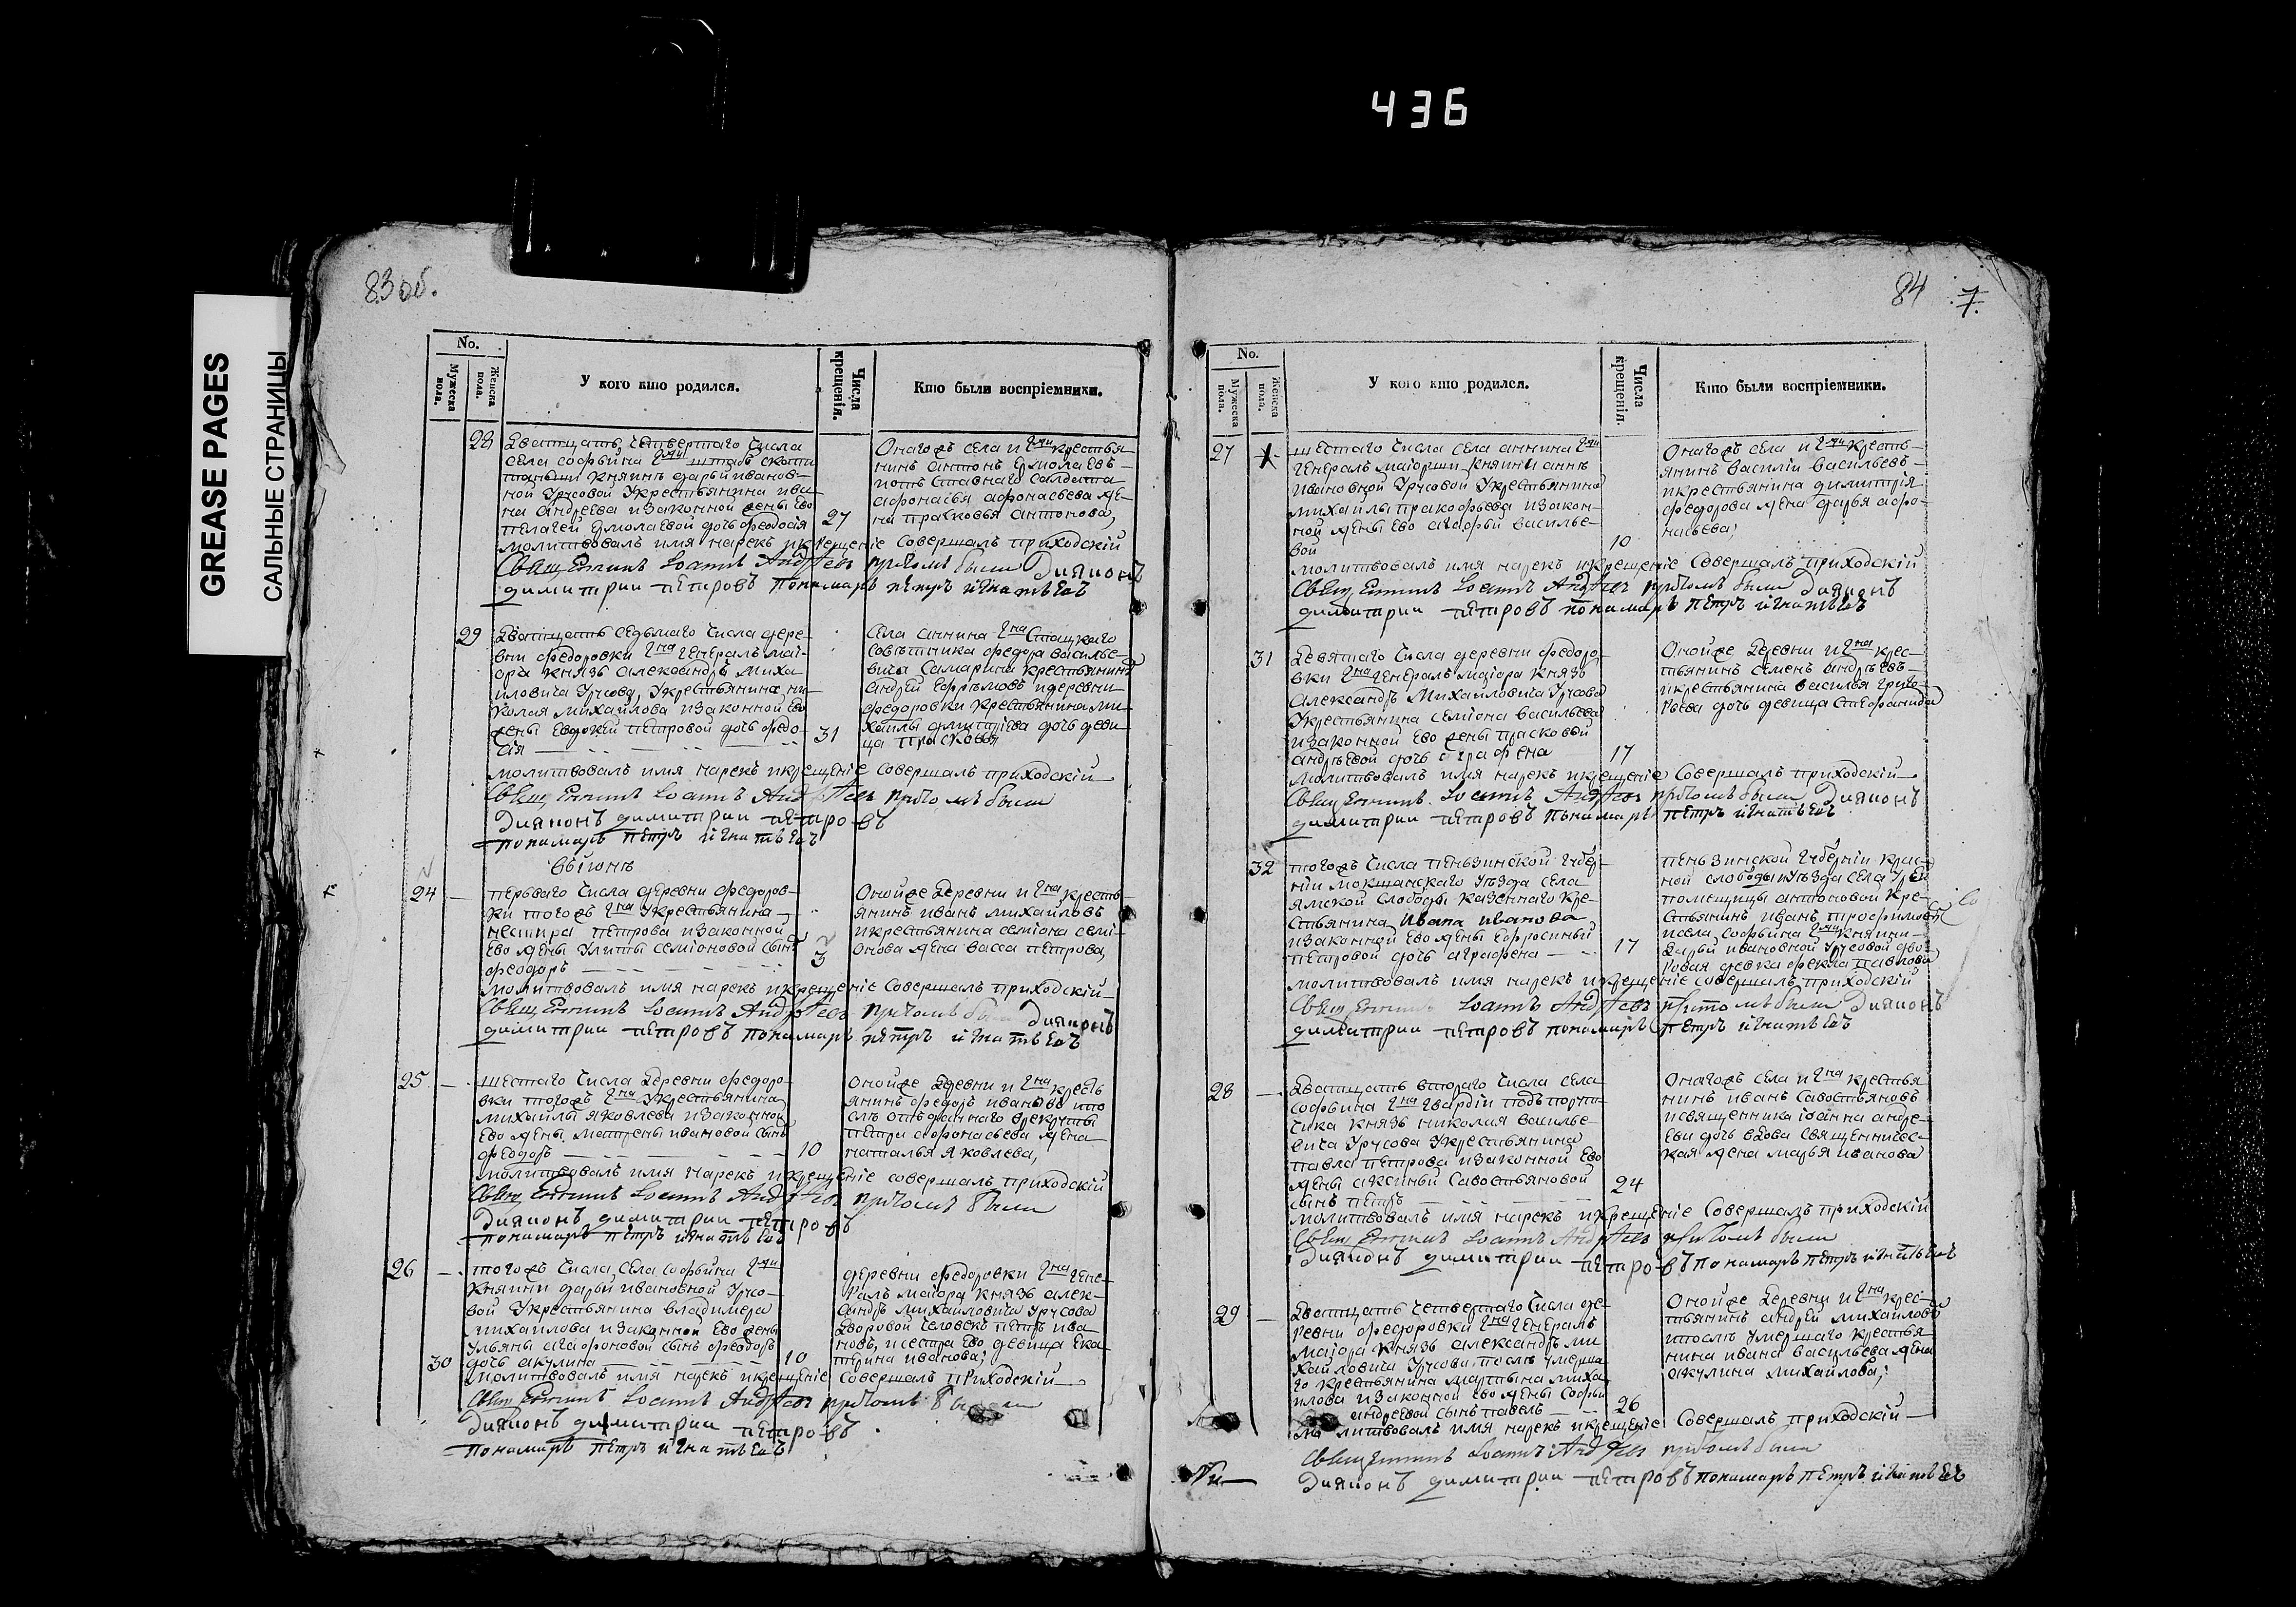 436
GREASE PAGES
САЛЬНЫЕ СТРАНИЦЫ
83 об.
No.
Мужеска пола.
Женска пола.
У кого кто родился.
Числа крещенія.
Кто были воспріемники.
28
Дватцать четвертаго числа
села софьина гжи штабъ
княинъ дарьи иванов-
ной Урусовой Укрестьянина ива
на андреева изаконной жены Ево
пелагеи Ермолаевой дочь феодосія
27
Онагожъ села и гжи крестья
нинъ антонъ Ермолаевъ
аѳонасья аѳонасьева же-
на прасковья антонова,
молитвовалъ имя нарекъ икрещеніе совершалъ приходскій
Священникъ Іоаннъ Андреевъ притомъ были Диаконъ
димитрии петровъ пономарь петръ игнатьевъ
29
Дватцать седьмаго числа дере-
вни федоровки гна генералъ маі-
ора князь александръ миха
иловича Урусова, Укрестьянина ни-
колая михайлова изаконной Ево
жены Евдокеи петровой дочь федо-
сія
31
села аннина гна статцкаго
совѣтника федора василье-
вича самарина крестьянинъ
андрей Ефремовъ идеревни
федоровки крестьянина ми-
хайлы димитріева дочь деви-
ца прасковья
молитвовалъ имя нарекъ икрещеніе совершалъ приходскій
Священникъ Іоаннъ Андреевъ притомъ были
Диаконъ димитрии петровъ
пономарь петръ игнатьевъ
Въ іюнѣ
24
перваго числа деревни федоров-
ки тогожъ гна Укрестьянина
нестира петрова изаконной
Ево жены Улиты семіоновой сынъ
феодоръ
3
Онойже деревни и гна кресть-
янинъ иванъ михайловъ
икрестьянина семіона семі-
онова жена васса петрова,
молитвовалъ имя нарекъ икрещеніе совершалъ приходскій
Священникъ Іоаннъ Андреевъ притомъ были Диаконъ
димитрии петровъ пономарь петръ игнатьевъ
25
шестаго числа деревни федоро-
вки тогожъ гна Укрестьянина
михайлы яковлева изаконной
Ево жены матрены ивановой сынъ
феодоръ
10
Онойже деревни и гна кресть
янинъ федоръ ивановъ ипо
слѣ отъданнаго врекруты
петра аѳонасьева жена
наталья яковлева,
молитвовалъ имя нарекъ икрещеніе совершалъ приходскій
Священникъ Іоаннъ Андреевъ притомъ были
Диаконъ димитрии петровъ
пономарь петръ игнатьевъ
26
тогожъ числа села софьина гжи
княини дарьи ивановной Урусо-
вой Укрестьянина владимера
михайлова изаконной Ево жены
Ульяны агафоновой сынъ феодоръ
30
дочь акулина
10
деревни федоровки гна гене-
ралъ маіора князь алек-
сандръ михайловича Урусова
дворовой человекъ петръ ива
новъ, исестра Ево девица Ека-
терина иванова,
молитвовалъ имя нарекъ икрещеніе совершалъ приходскій
Священникъ Іоаннъ Андреевъ притомъ были
Диаконъ димитрии петровъ
пономарь петръ игнатьевъ
84
7.
No.
Мужеска пола.
Женска пола.
У кого кто родился.
Числа крещенія.
Кто были воспріемники.
27
шестаго числа села аннина гжи
генералъ маіорши княини анны
ивановной Урусовой Укрестьянина
михайлы пракофьева изакон-
ной жены Ево агафьи василье-
вой
10
Онагожъ села и гжи кресть-
янинъ василій васильевъ
икрестьянина димитрія
федорова жена дарья аѳо-
насьева,
молитвовалъ имя нарекъ икрещеніе совершалъ приходскій
Священникъ Іоаннъ Андреевъ притомъ были Диаконъ
димитрии петровъ пономарь петръ игнатьевъ
31
Девятаго числа деревни федоро-
вки гна генералъ маіора князь
александръ михайловича Урусова
Укрестьянина семіона васильева
изаконной Ево жены прасковьи
андреевой дочь аграфена
17
Онойже деревни и гна крес-
тьянинъ семенъ андреевъ
икрестьянина василья григо-
рьева дочь девица стефанида
молитвовалъ имя нарекъ икрещеніе совершалъ приходскій
Священникъ Іоаннъ Андреевъ притомъ были Диаконъ
димитрии петровъ пономарь петръ игнатьевъ
32
тогожъ числа пеньзинской губер-
ніи мокшанскаго уѣзда села
ямской слободы казеннаго кре-
стьянина ивана иванова
изаконной Ево жены Ефросиньи
петровой дочь аграфена
17
пеньзинской губерніи крас-
ной слободы уѣзда села
помещицы антоновой кре-
стьянинъ иванъ трофимовъ
исела софьина гжи княини
дарьи ивановной Урусовой дво-
ровая девка фекла павлова
молитвовалъ имя нарекъ икрещеніе совершалъ приходскій
Священникъ Іоаннъ Андреевъ притомъ были Диаконъ
димитрии петровъ пономарь петръ игнатьевъ
28
Дватцать втораго числа села
софьина гна гвардіи подъпору-
чика князь николая василье-
вича Урусова Укрестьянина
павла петрова изаконной Ево
жены аксиньи савостьяновой
сынъ петръ
24
Онагожъ села и гна крестья
нинъ иванъ савостьяновъ
исвященника іоанна андре-
ева дочь вдова священничес-
кая жена марья иванова
молитвовалъ имя нарекъ икрещеніе совершалъ приходскій
Священникъ Іоаннъ Андреевъ притомъ были
Диаконъ димитрии петровъ пономарь петръ игнатьевъ
29
Дватцать четвертаго числа де-
ревни федоровки гна генералъ
маіора князь александръ ми
хайловича Урусова послѣ умерша-
го крестьянина мартына миха
илова изаконной Ево жены софьи
андреевой сынъ павелъ
26
Онойже деревни и гна крес-
тьянинъ андрей михайловъ
ипослѣ умершаго крестья
нина ивана васильева жена
акулина михайлова,
молитвовалъ имя нарекъ икрещеніе совершалъ приходскій
Священникъ Іоаннъ Андреевъ притомъ были
Диаконъ димитрии петровъ пономарь петръ игнатьевъ